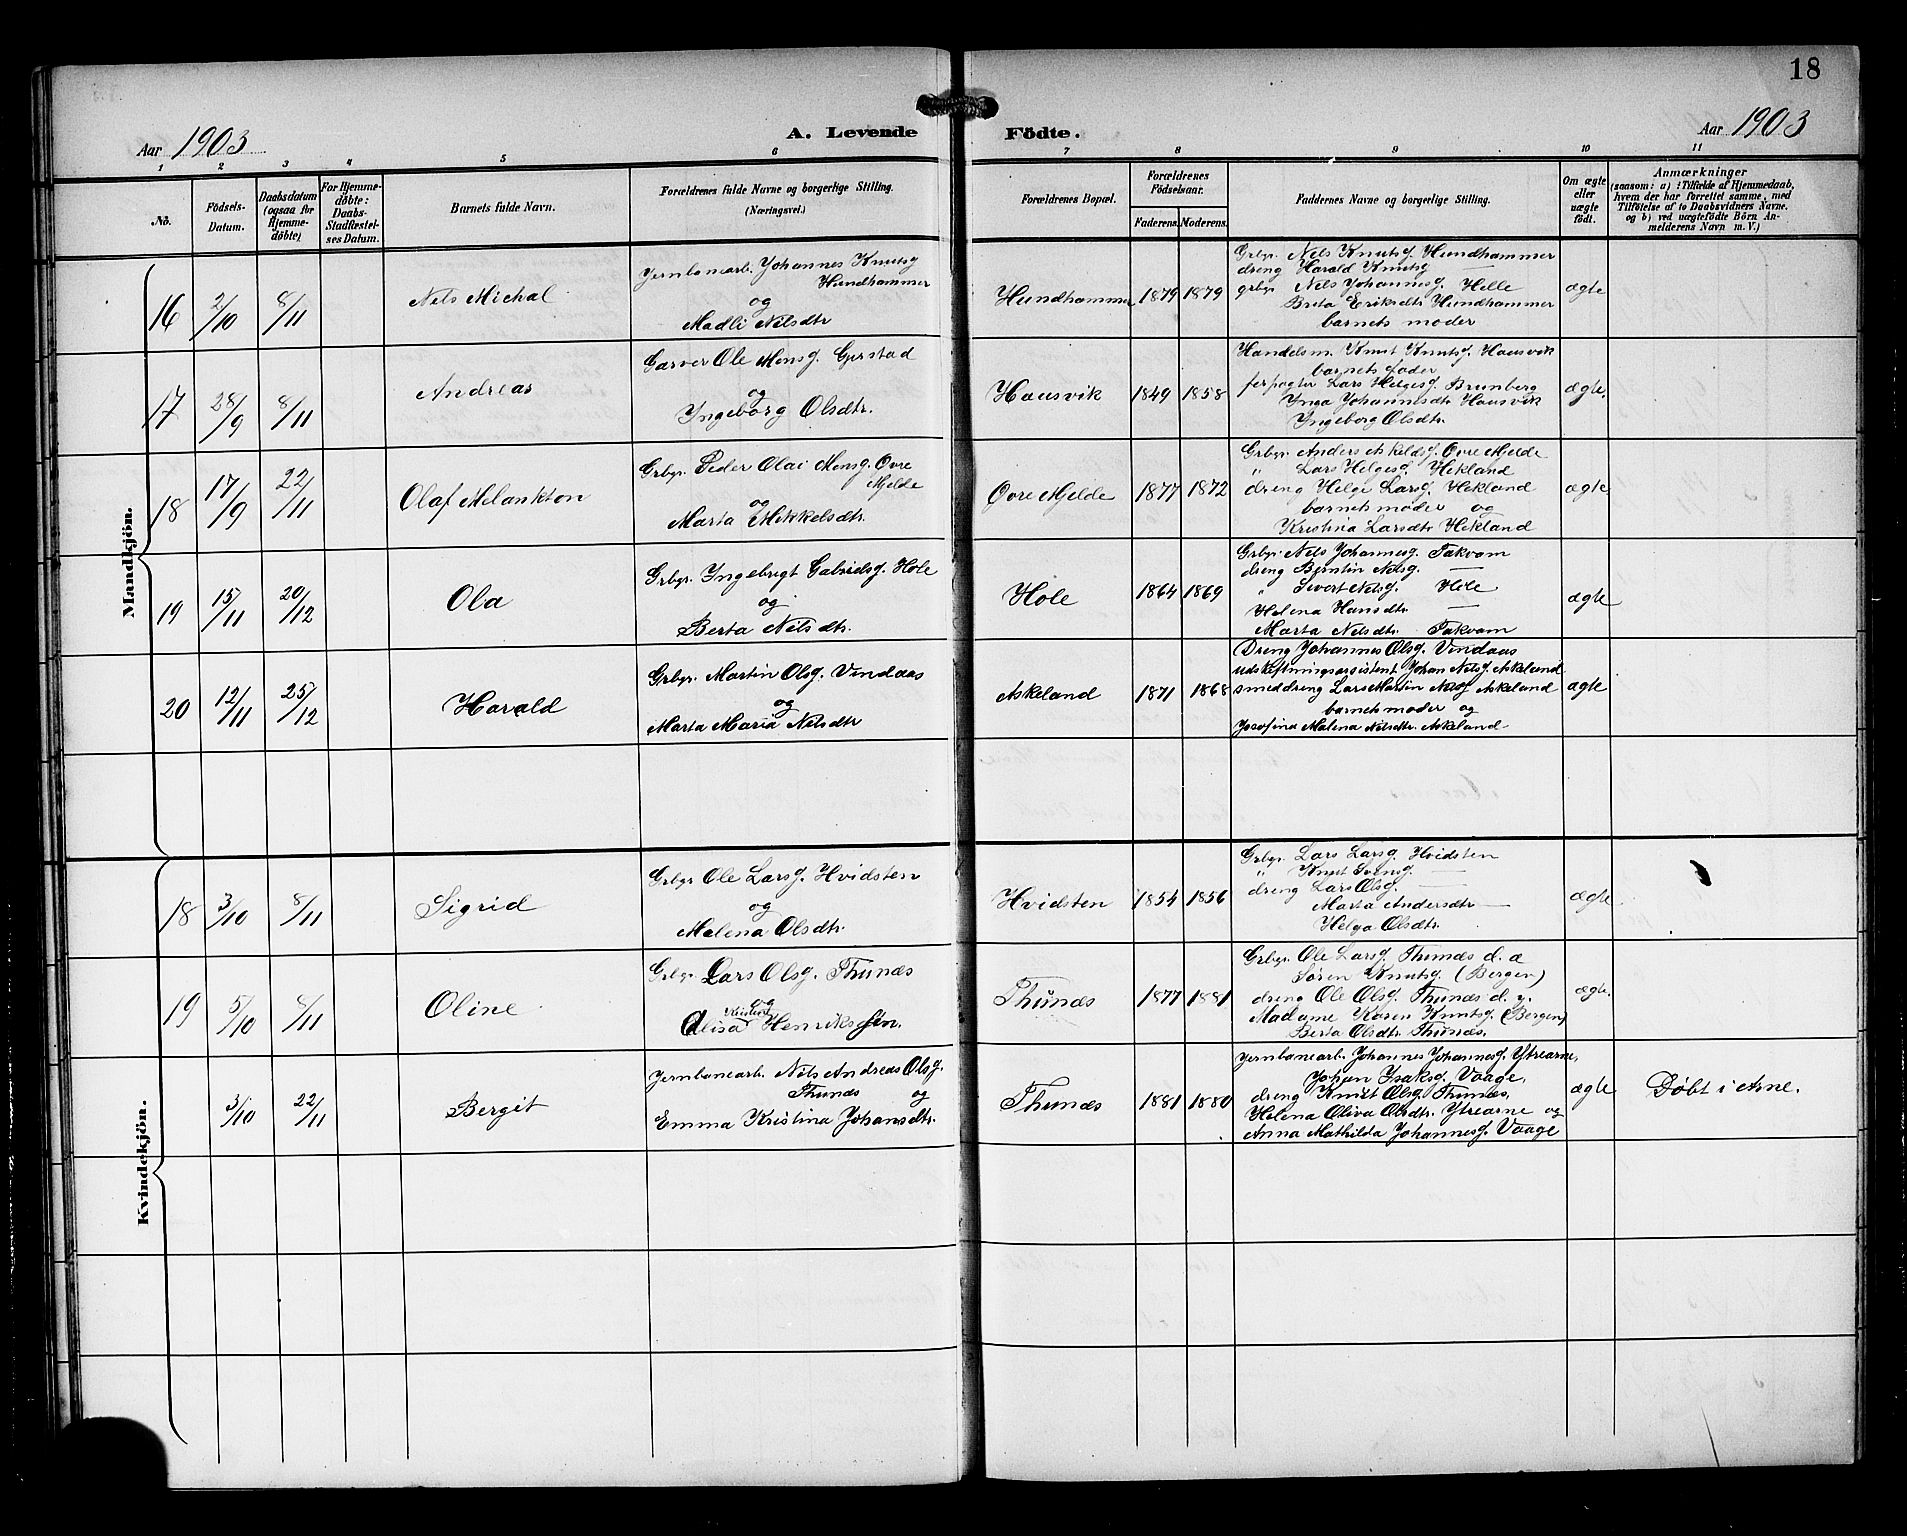 18
Aar 1903 A. Levende Födte. Aar 1903
1 2 3 4 5 6 7 8 9 10 11
No.
Födsels-Datum.
Daabsdatum (ogsaa for Hjemme-døbte)
For Hjemme-døbte: Daabs-Stadfæstel-ses Datum.
Barnets fulde Navn.
Forældrenes fulde Navne og borgerlige Stilling.
(Næringsvei.)
Forældrenes Bopæl.
Forældrenes Födselsaar.
Faderens. Moderens.
Faddernes Navne og borgerlige Stilling.
Om ægte eller uægte født.
Anmærkninger
(saasom: a) i Tilfælde af Hjemmedaab,
hvem der har forrettet samme, med
Tilföielse af to Daabsvidners Navne.
og b) ved uægtefödte Börn An-
melderens Navn m. V.)
Mandkjön.
16 2/10 8/11 Nels Michal
Jernbanearb. Johannes Knutsg
Hundhammer
og
Madli Nilsdtr
Hundhammer 1879 1879
Grbgr. Nels Knutsg. Hundhammer
dreng Harald Knutsg —
grbgr Nels Johannesg. Helle
Brita Eriksdtr Hundhammer
barnets moder
ægte
17 28/9 8/11 Andreas
Garver Ole Monsg. Gjerstad
og
Ingeborg Olsdtr.
Hausvik 1849 1858
Handelsm. Knut Knutsg. Hausvik
barnets fader
forpagter Lars Helgesg. Brunberg
Inga Johannesdtr Hausvik
Ingeborg Olsdtr.
ægte.
18 17/9 22/11 Olaf Melankton
Grbgr. Peder Olai Monsg. Øvre
Mjelde
og
Marta Mikkelsdtr.
Øvre Mjelde 1877 1872
Grbgr. Anders Askeldsg. Øvre Mjelde
" Lars Helgesg. Hekland
dreng Helge Larsg. Hekland
barnets moder og
Kristina Larsdtr Hekland
ægte
19 15/11 20/12 Ola
Grbgr. Ingebrigt Gabrielsg. Hole
og
Berta Nilsdtr.
Hole 1864 1869
Grbgr. Nels Johannesg. Takvam
dreng Berntin Nelsg. —
" Sivert Nelsg. Hole
Helena Hansdtr. —
Marta Nelsdtr. Takvam
ægte
20 12/11 25/12 Harald
Grbgr. Martin Olsg. Vindaas
og
Marta Maria Nelsdtr
Askeland 1871 1868
Dreng Johannes Olsg. Vindaas
udskiftningsassistent Johan Nelsg. Askeland
smeddreng Lars Martin Nelsg Askeland
barnets moder og
Josefina Malena Nilsdtr. Askeland
ægte
Kvindekjön.
18 3/10 8/11 Sigrid
Grbgr Ole Larsg. Hvidsten
og
Malena Olsdtr.
Hvidsten 1854 1856
Grbgr. Lars Larsg. Hvidsten
" Knut Svensg. —
dreng Lars Olsg. —
Marta Andersdtr —
Helga Olsdtr.
ægte.
19 5/10 8/11 Oline
Grbgr. Lars Olsg. Thunæs
og
Elisa Henriksen.
Thunæs 1877 1881
Grbgr. Ole Larsg. Thunæs d. æ
Søren Knutsg. (Bergen)
dreng Ole Olsg. Thunæs d. y.
Madame Karen Knutsg. (Bergen)
Berta Olsdtr. Thunæs.
ægte.
3/10 22/11 Bergit
Jernbanearb. Nils Andreas Olsg.
Thunæs og
Emma Kristina Johansdtr.
Thunæs 1881 1880
Jernbanearb. Johannes Johannesg. Ytrearne,
Johan Isaksg. Vaage,
dreng Knut Olsg. Thunæs,
Helena Oliva Olsdtr. Ytrearne og
Anna Mathilda Johannesg. Vaage
ægte
Døbt i Arne.